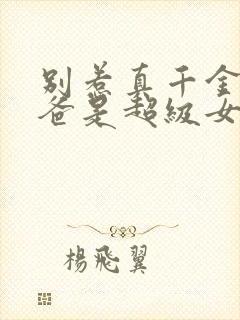 别惹真千金
爸是超级女
楊飛翼